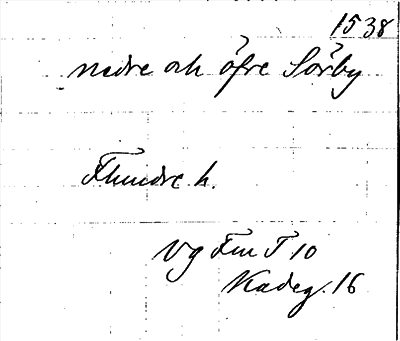 1538
nedre och öfre Sörby
Flundre h.
Vg Fm T 10
Kadeg. 16